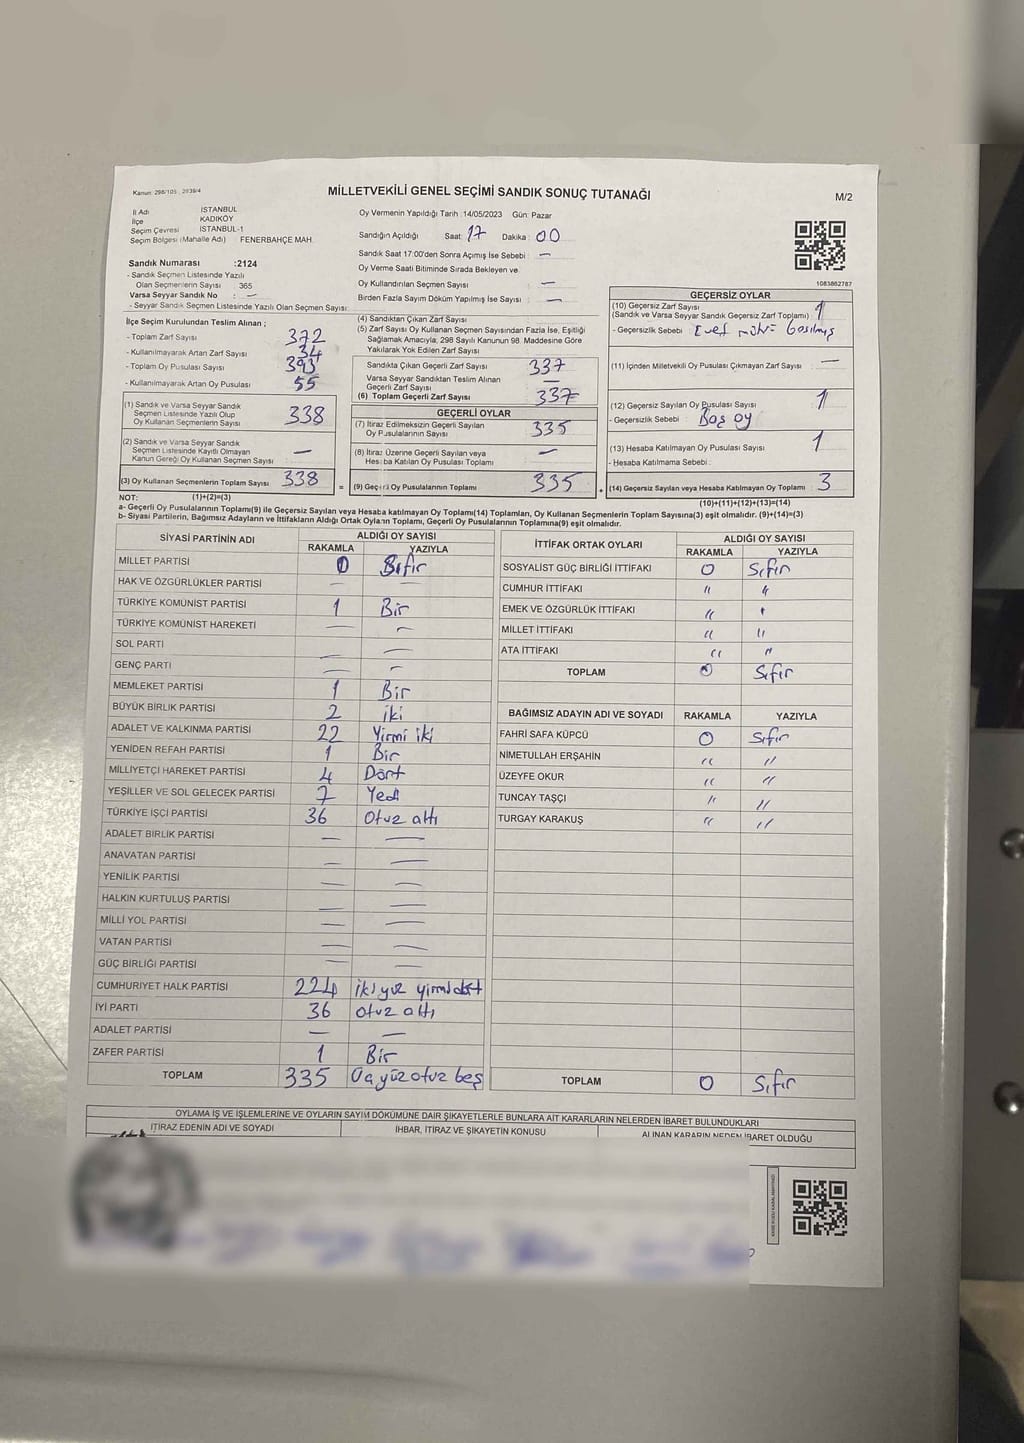 Kanun: 298/105 , 2839/4
MİLLETVEKİLİ GENEL SEÇİMİ SANDIK SONUÇ TUTANAĞI
M/2
İl Adı İSTANBUL
İlçe KADIKÖY
Seçim Çevresi İSTANBUL-1
Seçim Bölgesi (Mahalle Adı) FENERBAHÇE MAH.
Oy Vermenin Yapıldığı Tarih :14/05/2023 Gün: Pazar
Sandığın Açıldığı Saat: 17 Dakika: 00
Sandık Saat 17:00'den Sonra Açımış İse Sebebi : —
Oy Verme Saati Bitiminde Sırada Bekleyen ve
Oy Kullandırılan Seçmen Sayısı —
Birden Fazla Sayım Döküm Yapılmış İse Sayısı : —
1083862787
Sandık Numarası :2124
- Sandık Seçmen Listesinde Yazılı
Olan Seçmenlerin Sayısı : 365
Varsa Seyyar Sandık No : —
- Seyyar Sandık Seçmen Listesinde Yazılı Olan Seçmen Sayısı:
İlçe Seçim Kurulundan Teslim Alınan ;
- Toplam Zarf Sayısı 372
- Kullanılmayarak Artan Zarf Sayısı 34
- Toplam Oy Pusulası Sayısı 393
- Kullanılmayarak Artan Oy Pusulası 55
(1) Sandık ve Varsa Seyyar Sandık
Seçmen Listesinde Yazılı Olup
Oy Kullanan Seçmenlerin Sayısı 338
(2) Sandık ve Varsa Seyyar Sandık
Seçmen Listesinde Kayıtlı Olmayan
Kanun Gereği Oy Kullanan Seçmen Sayısı —
(3) Oy Kullanan Seçmenlerin Toplam Sayısı 338
(4) Sandıktan Çıkan Zarf Sayısı
(5) Zarf Sayısı Oy Kullanan Seçmen Sayısından Fazla İse, Eşitliği
Sağlamak Amacıyla, 298 Sayılı Kanunun 98. Maddesine Göre
Yakılarak Yok Edilen Zarf Sayısı
Sandıkta Çıkan Geçerli Zarf Sayısı 337
Varsa Seyyar Sandıktan Teslim Alınan
Geçerli Zarf Sayısı —
(6) Toplam Geçerli Zarf Sayısı 337
GEÇERLİ OYLAR
(7) İtiraz Edilmeksizin Geçerli Sayılan
Oy Pusulalarının Sayısı 335
(8) İtiraz Üzerine Geçerli Sayılan veya
Hesaba Katılan Oy Pusulası Toplamı —
= (9) Geçerli Oy Pusulalarının Toplamı 335 +
GEÇERSİZ OYLAR
(10) Geçersiz Zarf Sayısı
(Sandık ve Varsa Seyyar Sandık Geçersiz Zarf Toplamı) 1
- Geçersizlik Sebebi : Evet mührü basılmış
(11) İçinden Milletvekili Oy Pusulası Çıkmayan Zarf Sayısı —
(12) Geçersiz Sayılan Oy Pusulası Sayısı 1
- Geçersizlik Sebebi : Boş oy
(13) Hesaba Katılmayan Oy Pusulası Sayısı 1
- Hesaba Katılmama Sebebi :
(14) Geçersiz Sayılan veya Hesaba Katılmayan Oy Toplamı 3
NOT: (1)+(2)=(3)
(10)+(11)+(12)+(13)=(14)
a- Geçerli Oy Pusulalarının Toplamı(9) ile Geçersiz Sayılan veya Hesaba katılmayan Oy Toplamı(14) Toplamları, Oy Kullanan Seçmenlerin Toplam Sayısına(3) eşit olmalıdır. (9)+(14)=(3)
b- Siyasi Partilerin, Bağımsız Adayların ve İttifakların Aldığı Ortak Oyların Toplamı, Geçerli Oy Pusulalarının Toplamına(9) eşit olmalıdır.
SİYASİ PARTİNİN ADI ALDIĞI OY SAYISI
RAKAMLA YAZIYLA
MİLLET PARTİSİ 0 Sıfır
HAK VE ÖZGÜRLÜKLER PARTİSİ — —
TÜRKİYE KOMÜNİST PARTİSİ 1 Bir
TÜRKİYE KOMÜNİST HAREKETİ — —
SOL PARTİ — —
GENÇ PARTİ — —
MEMLEKET PARTİSİ 1 Bir
BÜYÜK BİRLİK PARTİSİ 2 iki
ADALET VE KALKINMA PARTİSİ 22 Yirmi iki
YENİDEN REFAH PARTİSİ 1 Bir
MİLLİYETÇİ HAREKET PARTİSİ 4 Dört
YEŞİLLER VE SOL GELECEK PARTİSİ 7 Yedi
TÜRKİYE İŞÇİ PARTİSİ 36 Otuz altı
ADALET BİRLİK PARTİSİ — —
ANAVATAN PARTİSİ — —
YENİLİK PARTİSİ — —
HALKIN KURTULUŞ PARTİSİ — —
MİLLİ YOL PARTİSİ — —
VATAN PARTİSİ — —
GÜÇ BİRLİĞİ PARTİSİ — —
CUMHURİYET HALK PARTİSİ 224 iki yüz yirmi dört
İYİ PARTİ 36 otuz altı
ADALET PARTİSİ — —
ZAFER PARTİSİ 1 Bir
TOPLAM 335 Üç yüz otuz beş
İTTİFAK ORTAK OYLARI ALDIĞI OY SAYISI
RAKAMLA YAZIYLA
SOSYALİST GÜÇ BİRLİĞİ İTTİFAKI 0 Sıfır
CUMHUR İTTİFAKI " "
EMEK VE ÖZGÜRLÜK İTTİFAKI " "
MİLLET İTTİFAKI " "
ATA İTTİFAKI " "
TOPLAM 0 Sıfır
BAĞIMSIZ ADAYIN ADI VE SOYADI RAKAMLA YAZIYLA
FAHRİ SAFA KÜPCÜ 0 Sıfır
NİMETULLAH ERŞAHİN " "
ÜZEYFE OKUR " "
TUNCAY TAŞÇI " "
TURGAY KARAKUŞ " "
TOPLAM 0 Sıfır
OYLAMA İŞ VE İŞLEMLERİNE VE OYLARIN SAYIM DÖKÜMÜNE DAİR ŞİKAYETLERLE BUNLARA AİT KARARLARIN NELERDEN İBARET BULUNDUKLARI
İTİRAZ EDENİN ADI VE SOYADI İHBAR, İTİRAZ VE ŞİKAYETİN KONUSU ALINAN KARARIN NEDEN İBARET OLDUĞU